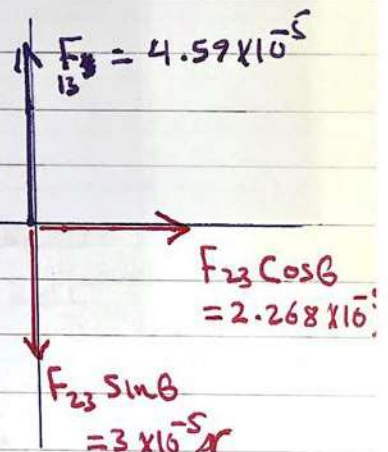 F₁₃ = 4.59X10⁻⁵
F₂₃ Cosθ
= 2.268X10⁻
F₂₃ Sinθ
= 3 X10⁻⁵ N